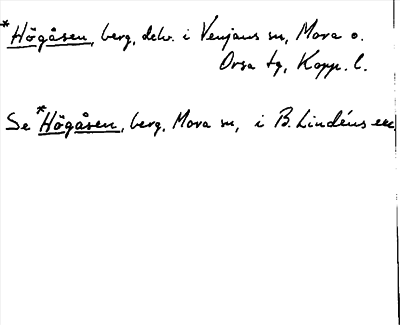 *Högåsen, berg, delv. i Venjans sn, Mora o.
Orsa tg, Kopp. l.
Se *Högåsen, berg, Mora sn, i B. Lindéns exc.